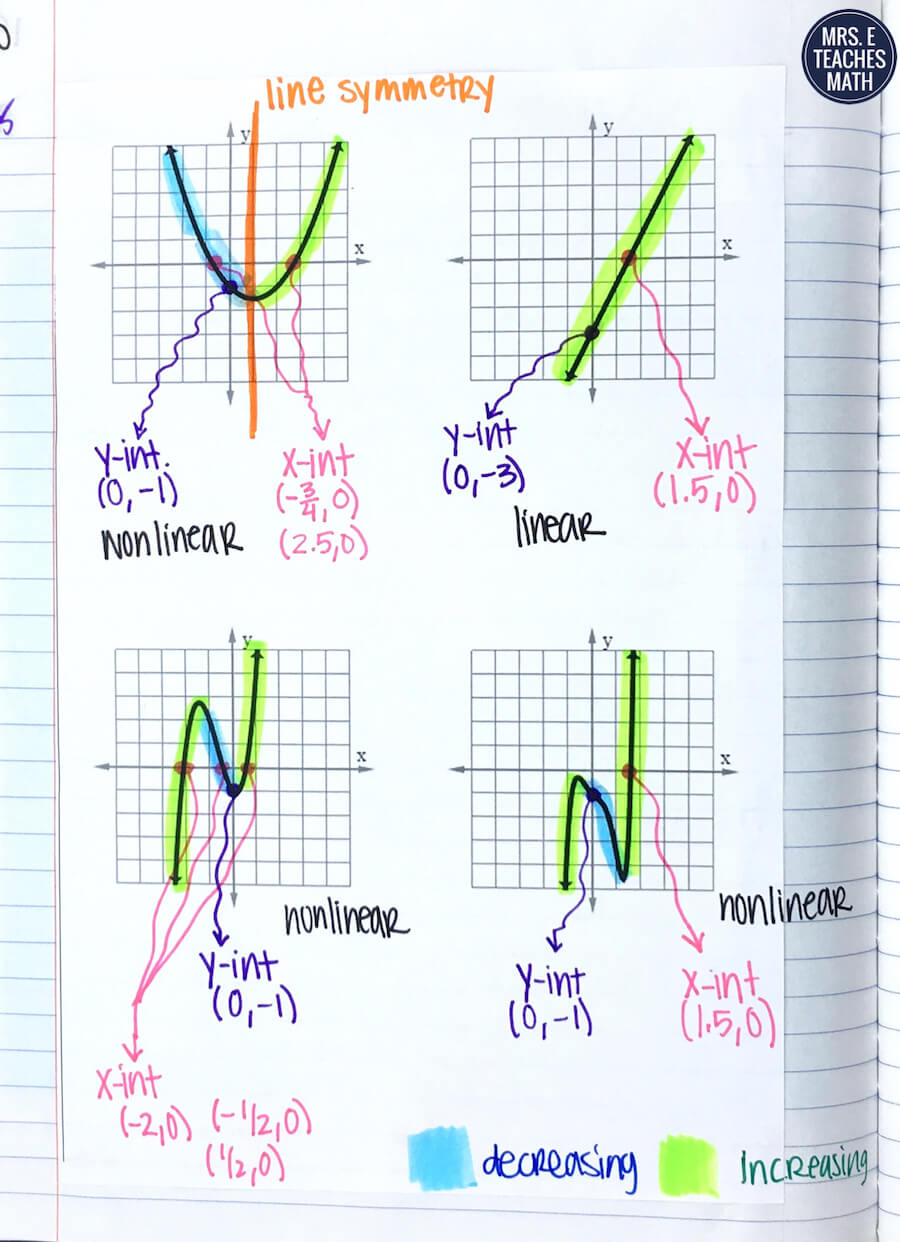 MRS. E
TEACHES
MATH
line symmetry
y
x
y-int.
(0, -1)
x-int
(-3/4, 0)
(2.5, 0)
nonlinear
y
x
y-int
(0, -3)
x-int
(1.5, 0)
linear
y
x
nonlinear
y-int
(0, -1)
x-int
(-2, 0) (-1/2, 0)
(1/2, 0)
y
x
nonlinear
y-int
(0, -1)
x-int
(1.5, 0)
decreasing
Increasing